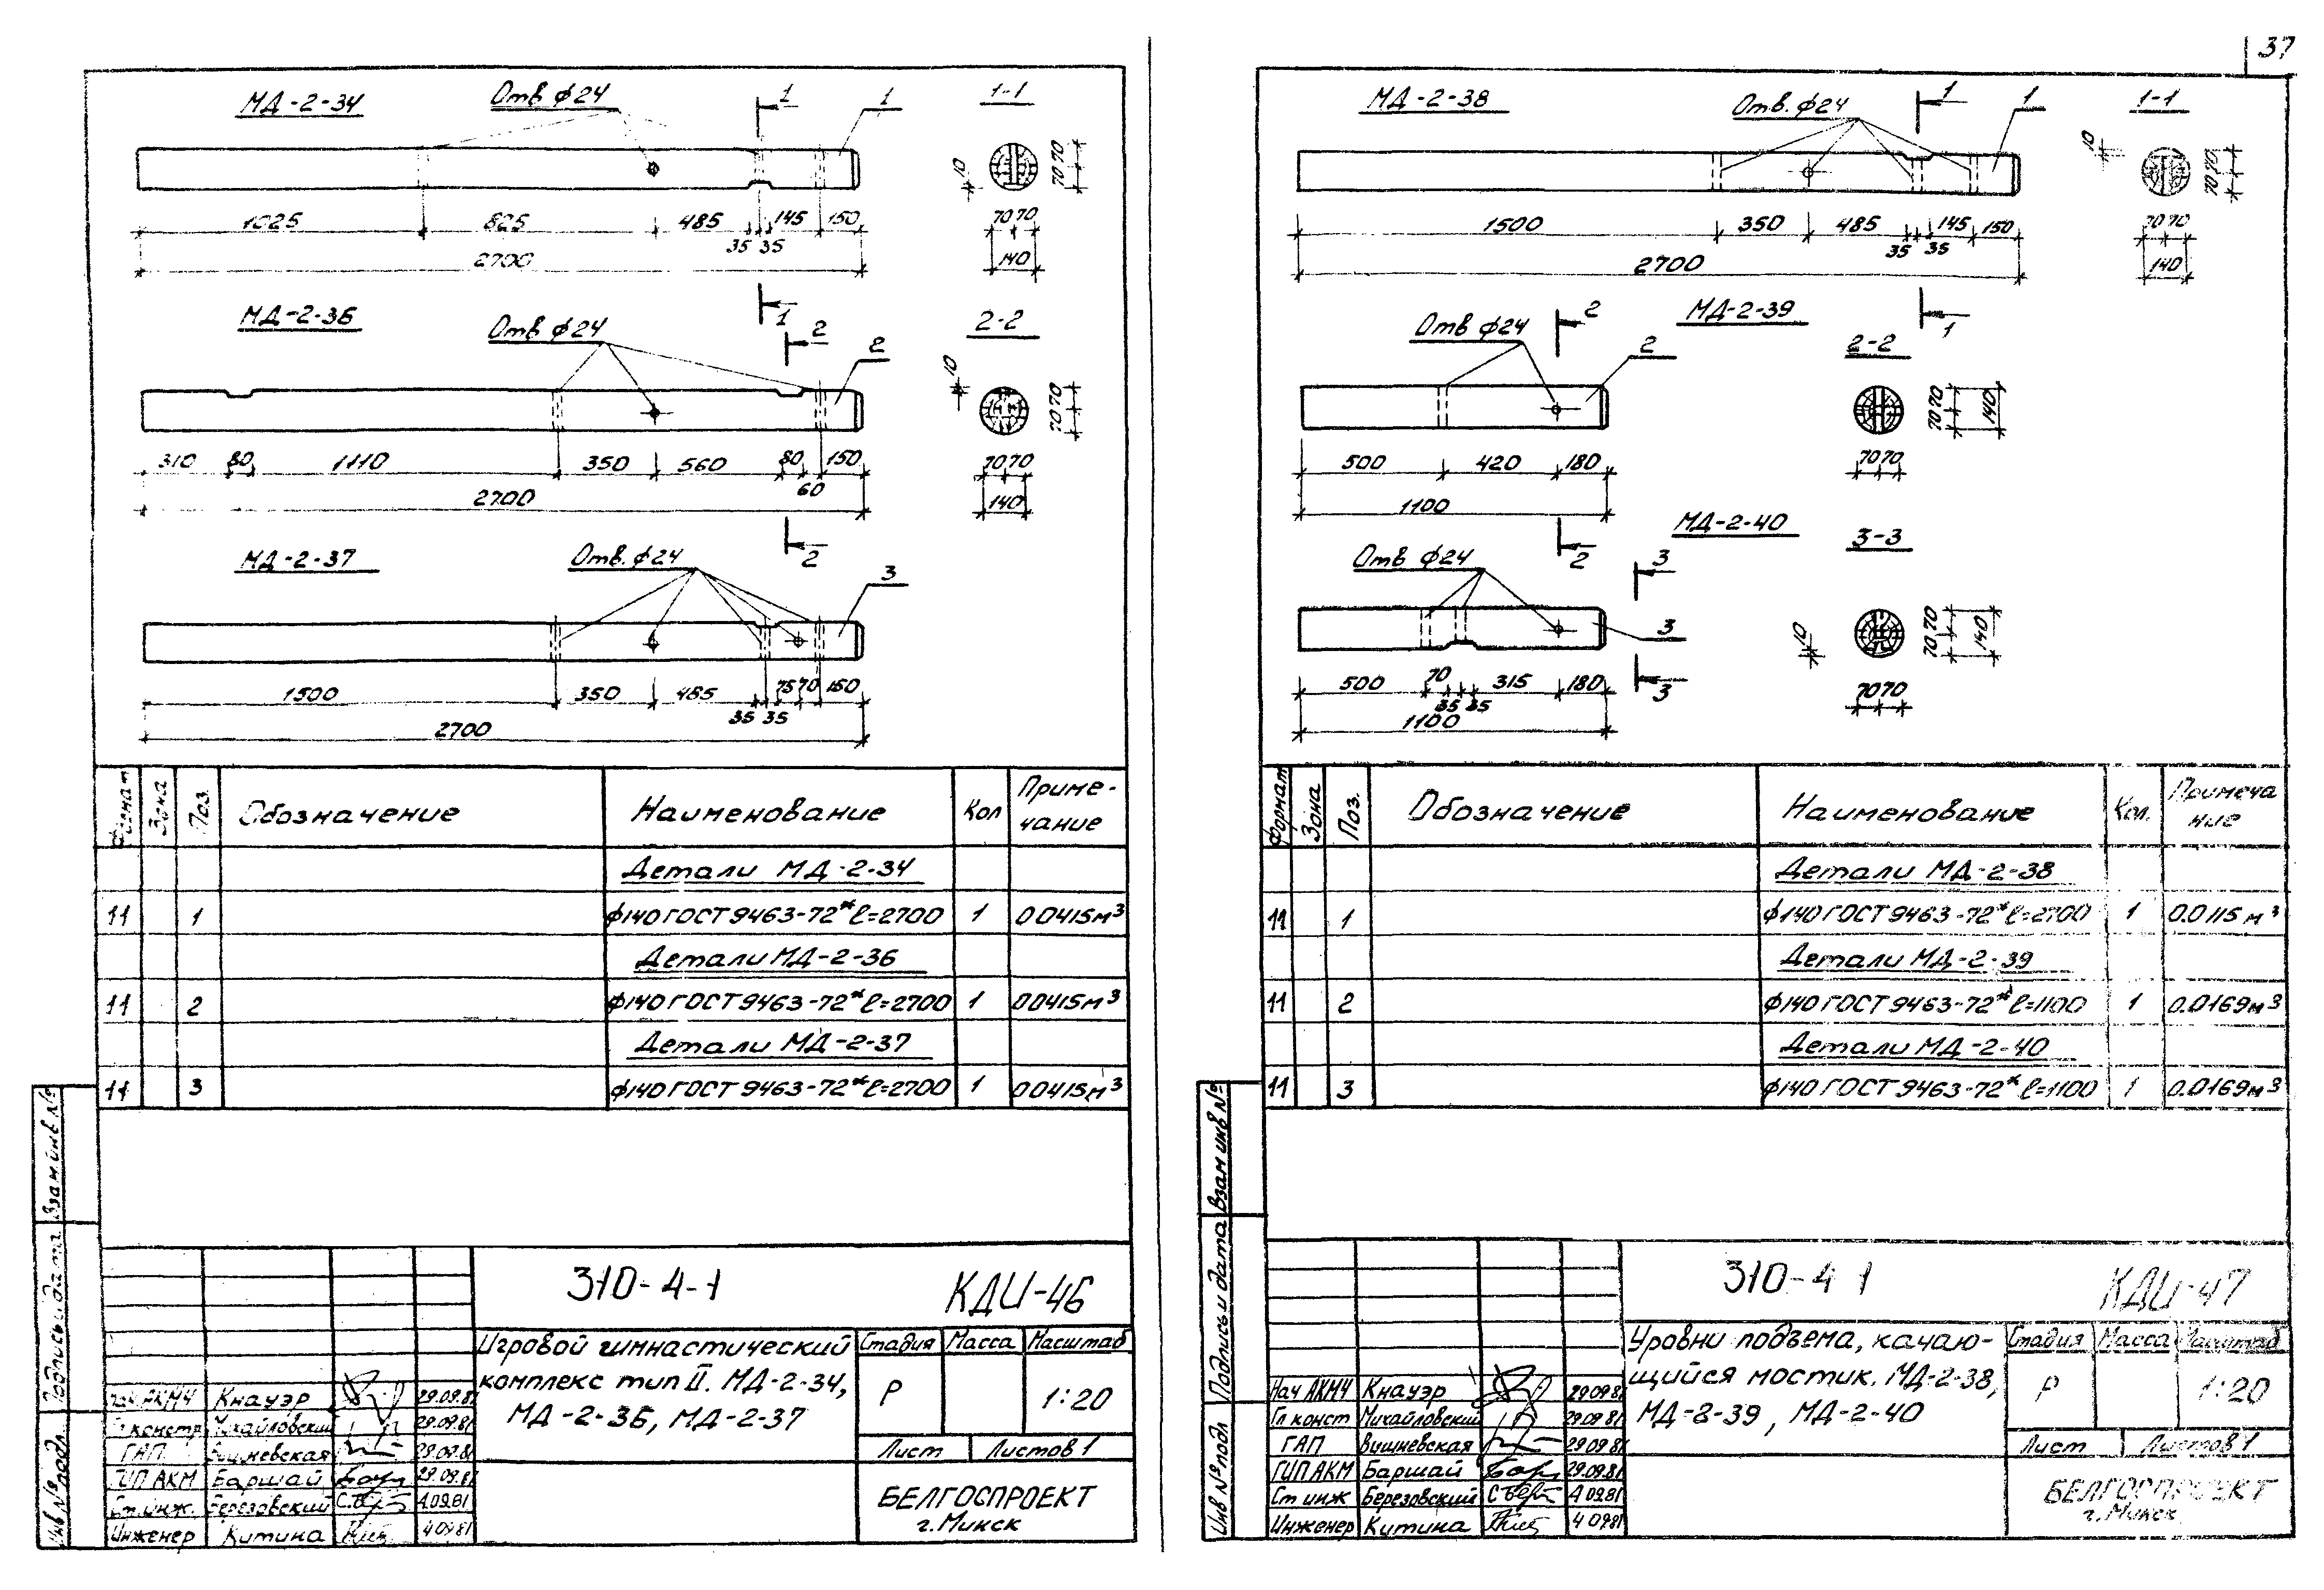 37
МД-2-34
Отв ф24
1
1
1-1
10
70 70
1025 825 485 145 150
35 35
2700
70 70
140
1
МД-2-36
Отв ф24
2
2
2-2
10
70 70
310 80 1110 350 560 80 150
60
2700
70 70
140
2
МД-2-37
Отв. ф24
3
1500 350 485 75 70 150
35 35
2700
Формат Зона Поз. Обозначение Наименование Кол Приме-
чание
Детали МД-2-34
11 1 ф140 ГОСТ 9463-72* ℓ=2700 1 0.0415м³
Детали МД-2-36
11 2 ф140 ГОСТ 9463-72* ℓ=2700 1 0.0415м³
Детали МД-2-37
11 3 ф140 ГОСТ 9463-72* ℓ=2700 1 0.0415м³
Взам инв №
Подпись и дата
Инв № подл
310-4-1 КДИ-46
Игровой гимнастический
комплекс тип II. МД-2-34,
МД-2-36, МД-2-37
Стадия Масса Масштаб
Р 1:20
Лист Листов 1
БЕЛГОСПРОЕКТ
г.Минск
Нач АКМЧ Кнауэр 29.09.81
Гл констр Михайловский 29.09.81
ГАП Вишневская 29.09.81
ГИП АКМ Баршай 29.09.81
Ст. инж. Березовский 4.09.81
Инженер Китина 4.09.81
МД-2-38
Отв. ф24
1
1
1-1
10
70 70
1500 350 485 145 150
35 35
2700
70 70
140
1
МД-2-39
Отв ф24
2
2
2-2
70 70
140
500 420 180
1100
70 70
2
МД-2-40
Отв ф24
3
3
3-3
10
70 70
140
500 70 315 180
35 35
1100
70 70
3
Формат Зона Поз. Обозначение Наименование Кол. Примеча
ние
Детали МД-2-38
11 1 ф140 ГОСТ 9463-72* ℓ=2700 1 0.0115м³
Детали МД-2-39
11 2 ф140 ГОСТ 9463-72* ℓ=1100 1 0.0169м³
Детали МД-2-40
11 3 ф140 ГОСТ 9463-72* ℓ=1100 1 0.0169м³
Взам инв №
Подпись и дата
Инв № подл
310-4 1 КДИ-47
Уровни подъема, качаю-
щийся мостик. МД-2-38,
МД-2-39, МД-2-40
Стадия Масса Масштаб
Р 1:20
Лист Листов 1
БЕЛГОСПРОЕКТ
г.Минск
Нач АКМЧ Кнауэр 29.09.81
Гл конст Михайловский 29.09.81
ГАП Вишневская 29.09.81
ГИП АКМ Баршай 29.09.81
Ст инж Березовский 4.09.81
Инженер Китина 4 09.81